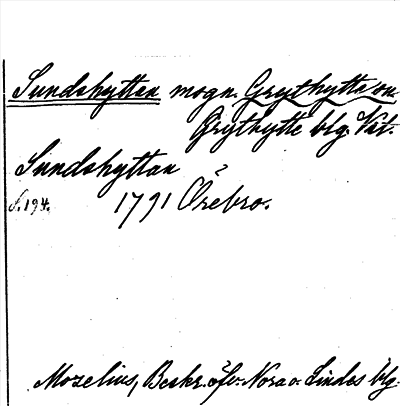 Sundshyttan mogn. Grythytte sn.
Grythytte blg. Vst.
Sundshyttan
s. 194. 1791 Örebro.
Mozelius, Beskr. öfv. Nora o. Lindes blg.